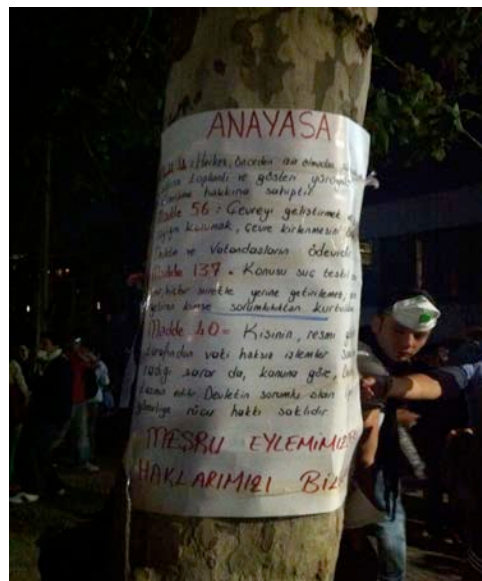 ANAYASA
Herkes, önceden izin almadan,
toplantı ve gösteri yürüyüşü
hakkına sahiptir
Madde 56 : Çevreyi geliştirmek
korumak, çevre kirlenmesini
ve Vatandaşların ödevidir
Madde 137 - Konusu suç teşkil
hiçbir suretle yerine getirilemez,
kimse sorumluluktan
Madde 40 = Kişinin, resmi
tarafından vaki haksız işlemler
zarar da, kanuna göre,
edilir. Devletin sorumlu olan
rücu hakkı saklıdır
MEŞRU EYLEMİMİZ
HAKLARIMIZI